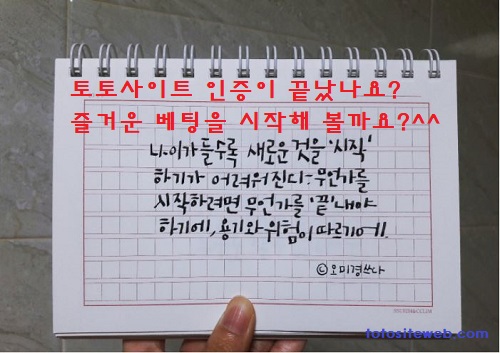 토토사이트 인증이 끝났나요?
즐거운 베팅을 시작해 볼까요?^^
나이가 들수록 새로운 것을 '시작'
하기가 어려워진다-무언가를
시작하려면 무언가를 '끝'내야
하기에, 용기와 위험이 따르기에.
ⓒ오미경쓰다
totositeweb.com